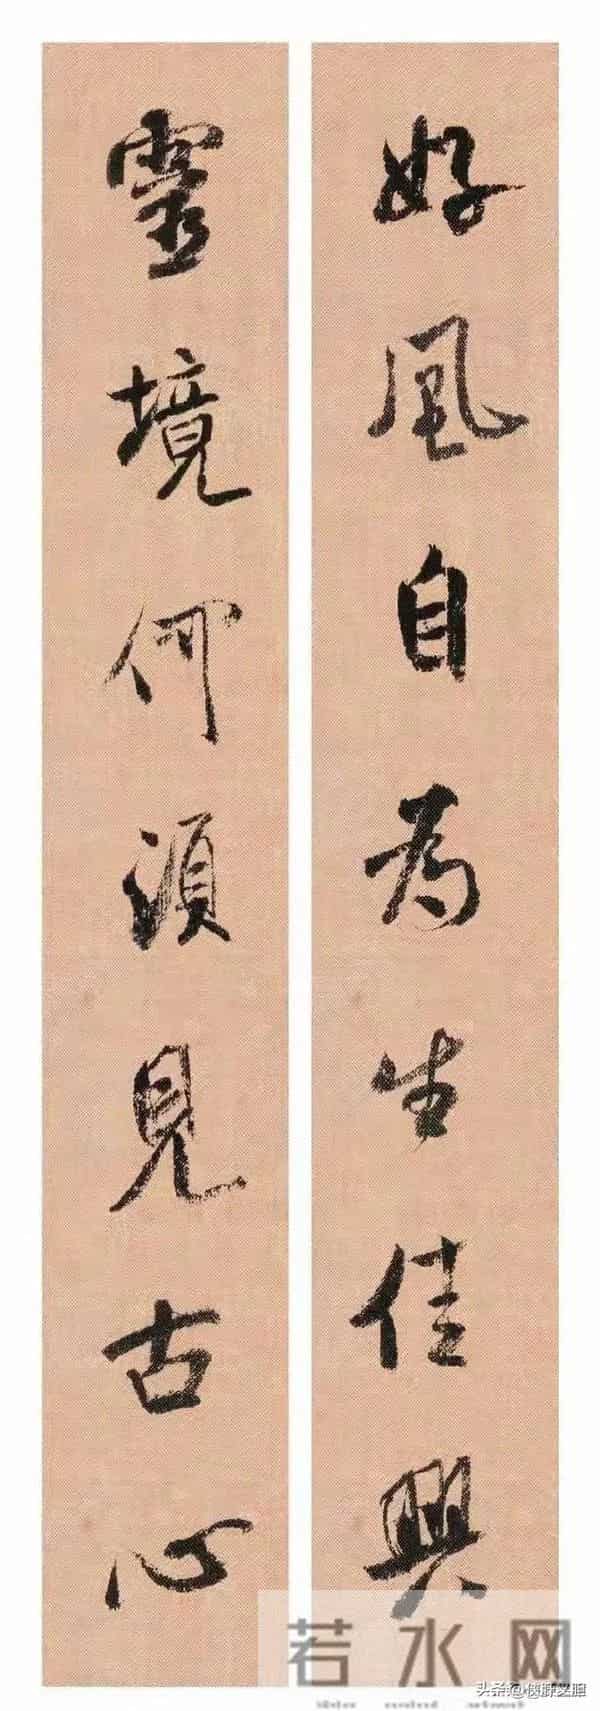 好風自為生佳興
靈境何須見古心
若水网